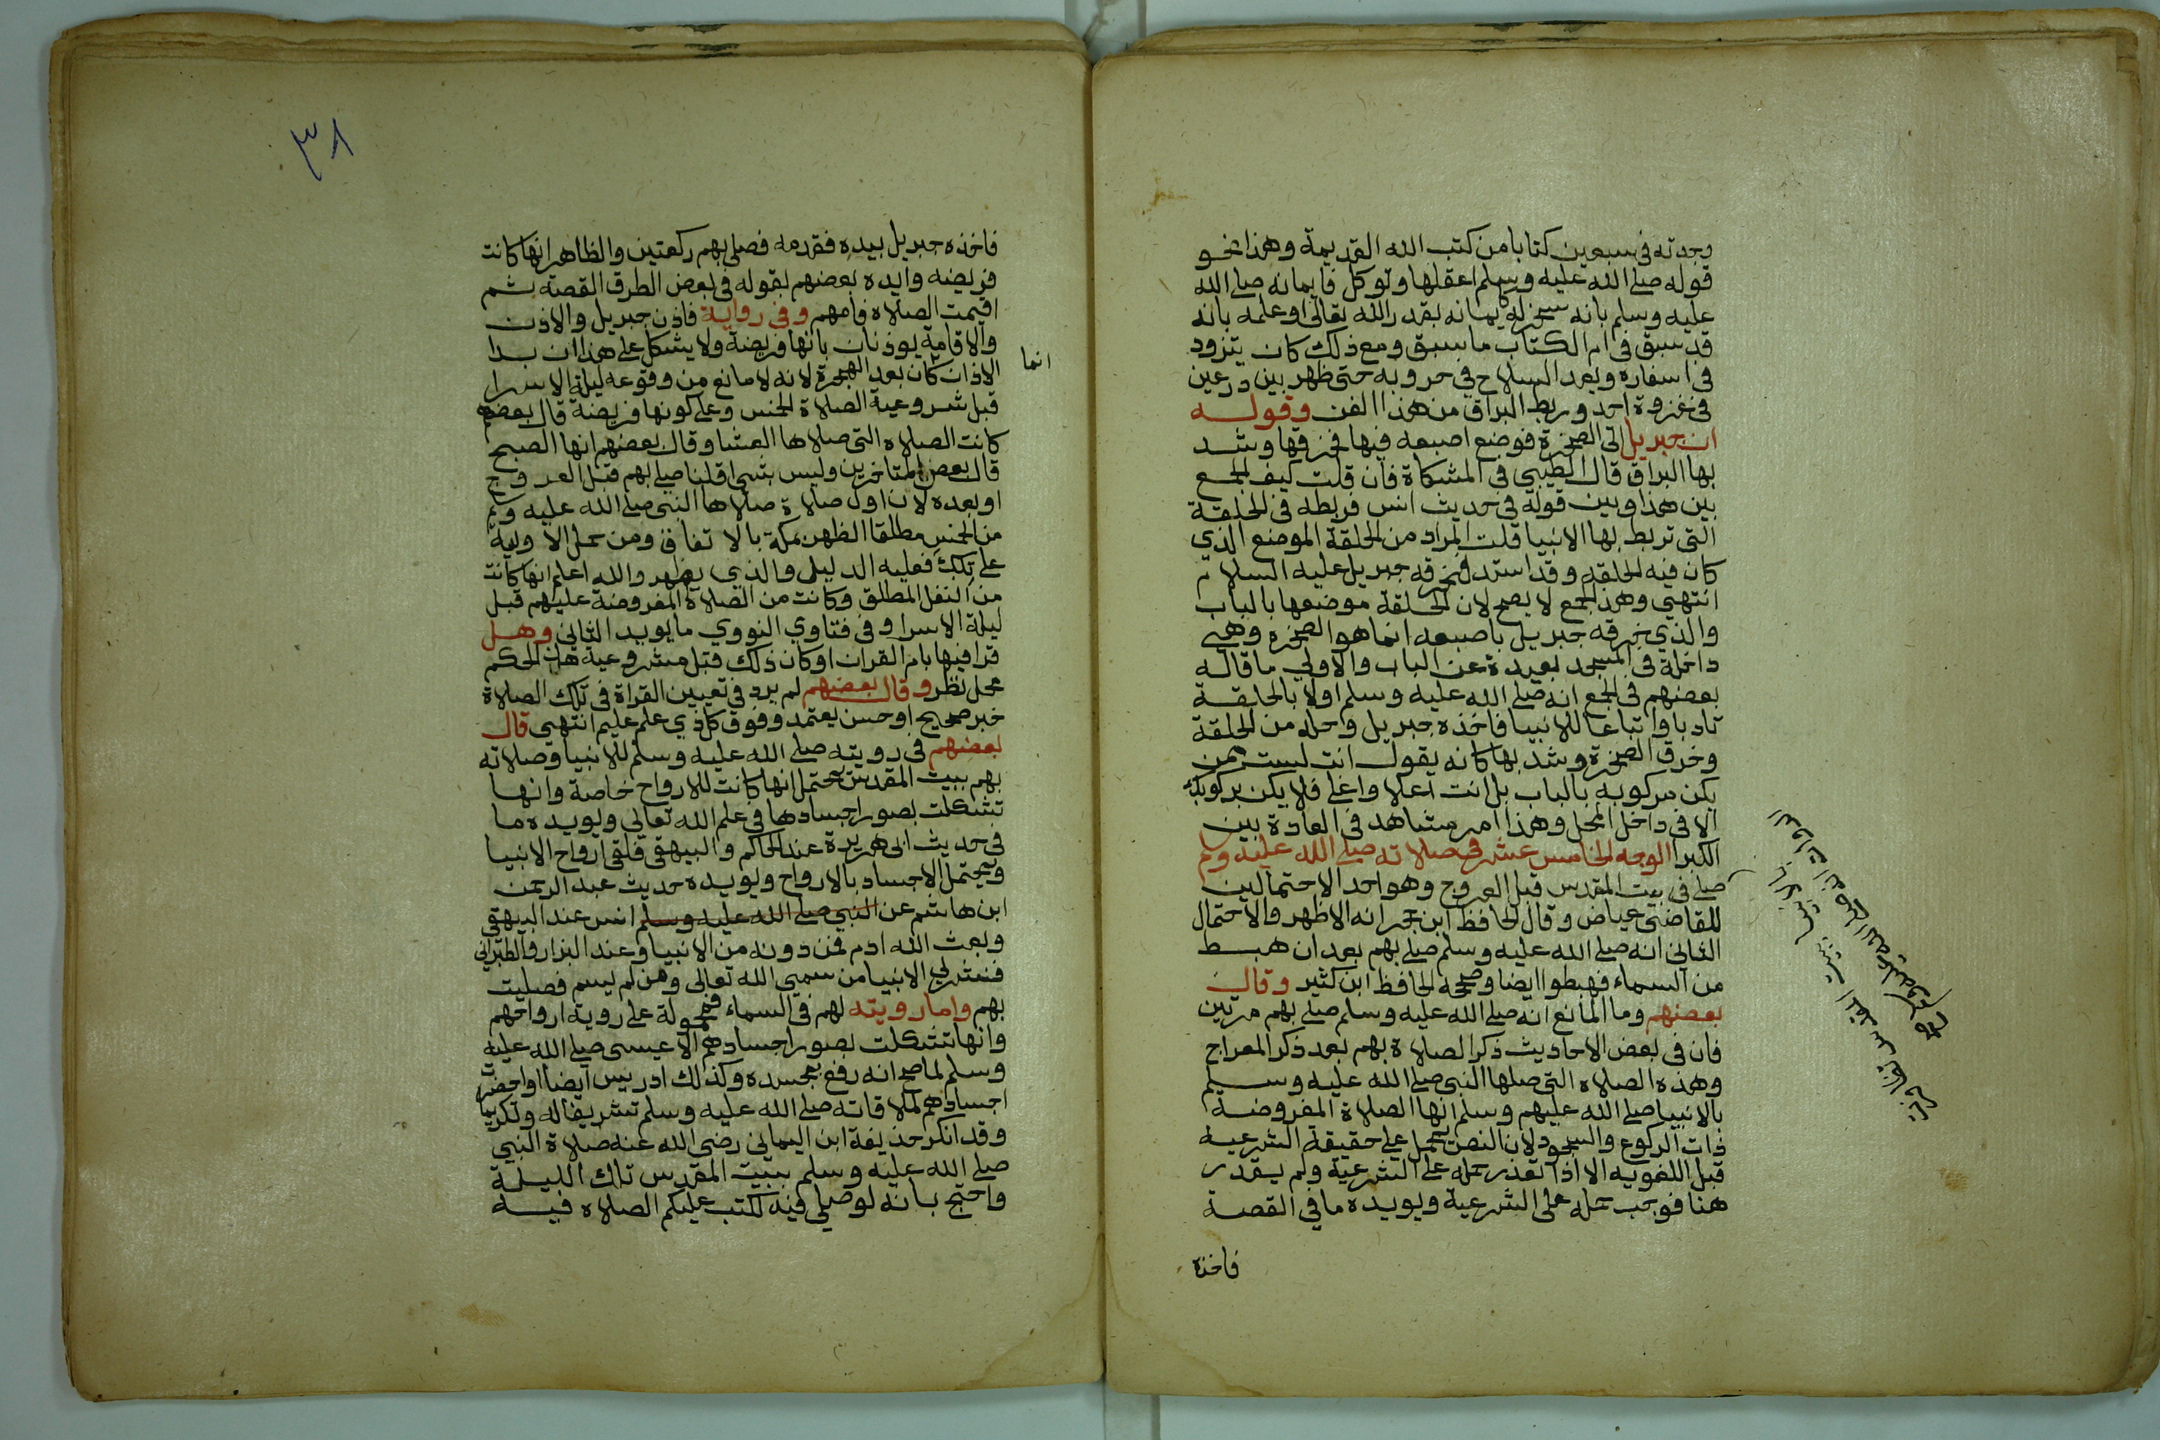 وجدته في سبعين كتابا من كتب الله القديمة وهذا نحو
قوله صلى الله عليه وسلم اعقلها وتوكل فايمانه صلى الله
عليه وسلم بانه سخر له كايمانه بقدر الله تعالى وعلمه بانه
قد سبق في ام الكتاب ما سبق ومع ذلك كان يتزود
في اسفاره ويعد السلاح في حروبه حتى ظهر بين درعين
في غزوة احد وربط البراق من هذا الفن وقوله
ان جبريل اتى الصخرة فوضع اصبعه فيها فخرقها وشد
بها البراق قال الطيبي في المشكاة فان قلت كيف الجمع
بين هذا وبين قوله في حديث انس فربطه في الحلقة
التي تربط بها الانبيا قلت المراد من الحلقة الموضع الذي
كان فيه الحلقة وقد استد فخرقه جبريل عليه السلام
انتهى وهذا الجمع لا يصح لان الحلقة موضعها بالباب
والذي خرقه جبريل باصبعه انما هو الصخرة وهي
داخلة في المسجد بعيدة عن الباب والاولى ما قاله
بعضهم في الجمع انه صلى الله عليه وسلم اولا بالحلقة
تادبا واتباعا للانبيا فاخذه جبريل وحله من الحلقة
وخرق الصخرة وشد بها كانه يقول انت لست ممن
يكن مركوبه بالباب بل انت اعلا واغلى فلا يكن مركوبك
الا في داخل المحل وهذا امر مشاهد في العادة بين
الكبرا الوجه الخامس عشر في صلاته صلى الله عليه وسلم
صلى في بيت المقدس قبل العروج وهو احد الاحتمالين
للقاضي عياض وقال الحافظ ابن حجر انه الاظهر والاحتمال
الثاني انه صلى الله عليه وسلم صلى بهم بعد ان هبط
من السماء فهبطوا ايضا وصححه الحافظ ابن كثير وقال
بعضهم وما المانع انه صلى الله عليه وسلم صلى بهم مرتين
فان في بعض الاحاديث ذكر الصلاة بهم بعد ذكر المعراج
وهذه الصلاه التي صلها النبي صلى الله عليه وسلم
بالانبيا صلى الله عليهم وسلم انها الصلاة المفروضة
ذات الركوع والسجود لان النص يحمل على حقيقة الشرعيه
قبل اللغويه الا اذا تعذر حمله على الشرعية ولم يقدر
هنا فوجب حمله على الشرعية ويويده ما في القصة
فاخذه
فاخذه جبريل بيده فقدمه فصلى بهم ركعتين والظاهر انها كانت
فريضه وايده بعضهم بقوله في بعض الطرق القصة ثم
اقيمت الصلاة فامهم وفي رواية فاذن جبريل والاذن
والاقامة يوذنان بانها فريضة ولا يشكل على هذا ان بدا
انما
الاذان كان بعد الهجرة لانه لا مانع من وقوعه ليلة الاسرا
قبل شروعية الصلاة الخمس وعلى كونها فريضة قال بعضهم
كانت الصلاه التي صلاها العشا وقال بعضهم انها الصبح
قال بعض المتاخرين وليس بشي اقلنا صلى بهم قبل العروج
او بعده لان اول صلاة صلاها النبي صلى الله عليه وسلم
من الخمس مطلقا الظهر بمكة بالاتفاق ومن حمل الاولية
على تلك فعليه الدليل والذي يظهر والله اعلم انها كانت
من النفل المطلق وكانت من الصلاة المفروضة عليهم قبل
ليلة الاسرا وفي فتاوي النووي ما يويد الثاني وهل
قرا فيها بام القران او كان ذلك قبل مشروعية هذا الحكم
محل نظر وقال بعضهم لم يرد في تعيين القراة في تلك الصلاة
خبر صحيح او حسن يعتمد وفوق كل ذي علم عليم انتهى قال
بعضهم في رويته صلى الله عليه وسلم للانبيا وصلاته
بهم ببيت المقدس يحتمل انها كانت للارواح خاصة وانها
تشكلت بصور اجسادها في علم الله تعالى ويويده ما
في حديث ابي هريرة عند الحاكم والبيهقي فلقى ارواح الانبيا
ويحتمل الاجساد بالارواح ويويده حديث عبد الرحمن
ابن هاشم عن النبي صلى الله عليه وسلم انس عند البيهقي
وبعث الله ادم فمن دونه من الانبيا وعند البزار والطبراني
فنشر لي الانبيا من سمي الله تعالى ومن لم يسم فصليت
بهم واما رويته لهم في السماء فمحمولة على روية ارواحهم
وانها تشكلت بصور اجسادهم الا عيسى صلى الله عليه
وسلم لما صح انه رفع بجسده وكذلك ادريس ايضا او احضرت
اجسادهم لملاقاته صلى الله عليه وسلم تشريفا له وتكريما
وقد انكر حذيفة ابن اليماني رضي الله عنه صلاة النبي
صلى الله عليه وسلم ببيت المقدس تلك الليلة
واحتج بانه لو صلى فيه لكتب عليكم الصلاه فيه
٣٨